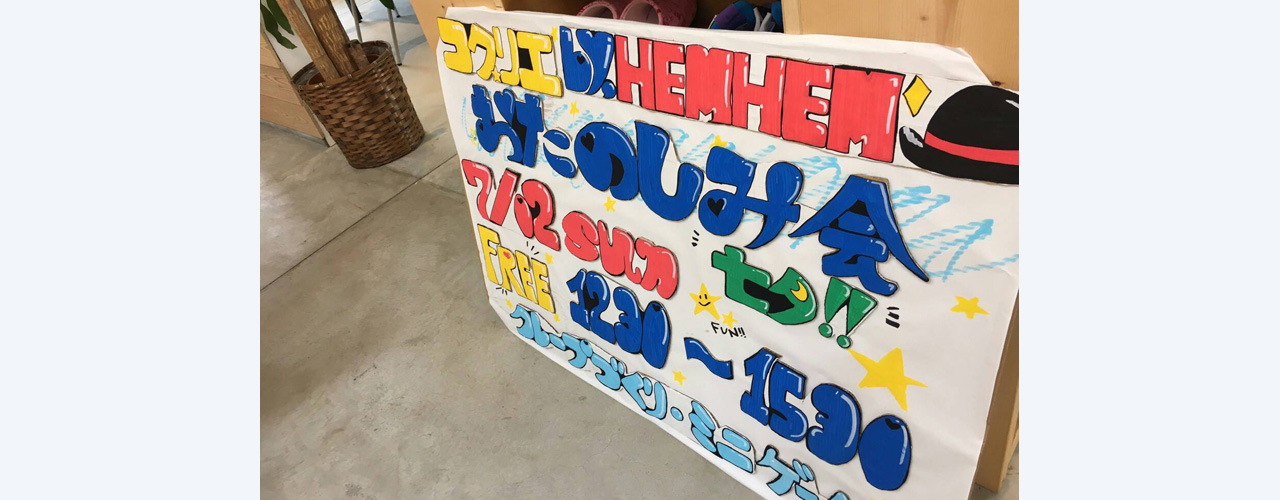 コクリエ by. HEMHEM
おたのしみ会
7/02 SUN セヨ!!
FREE 1230 ~ 1530
FUN!!
クレープづくり・ミニゲー